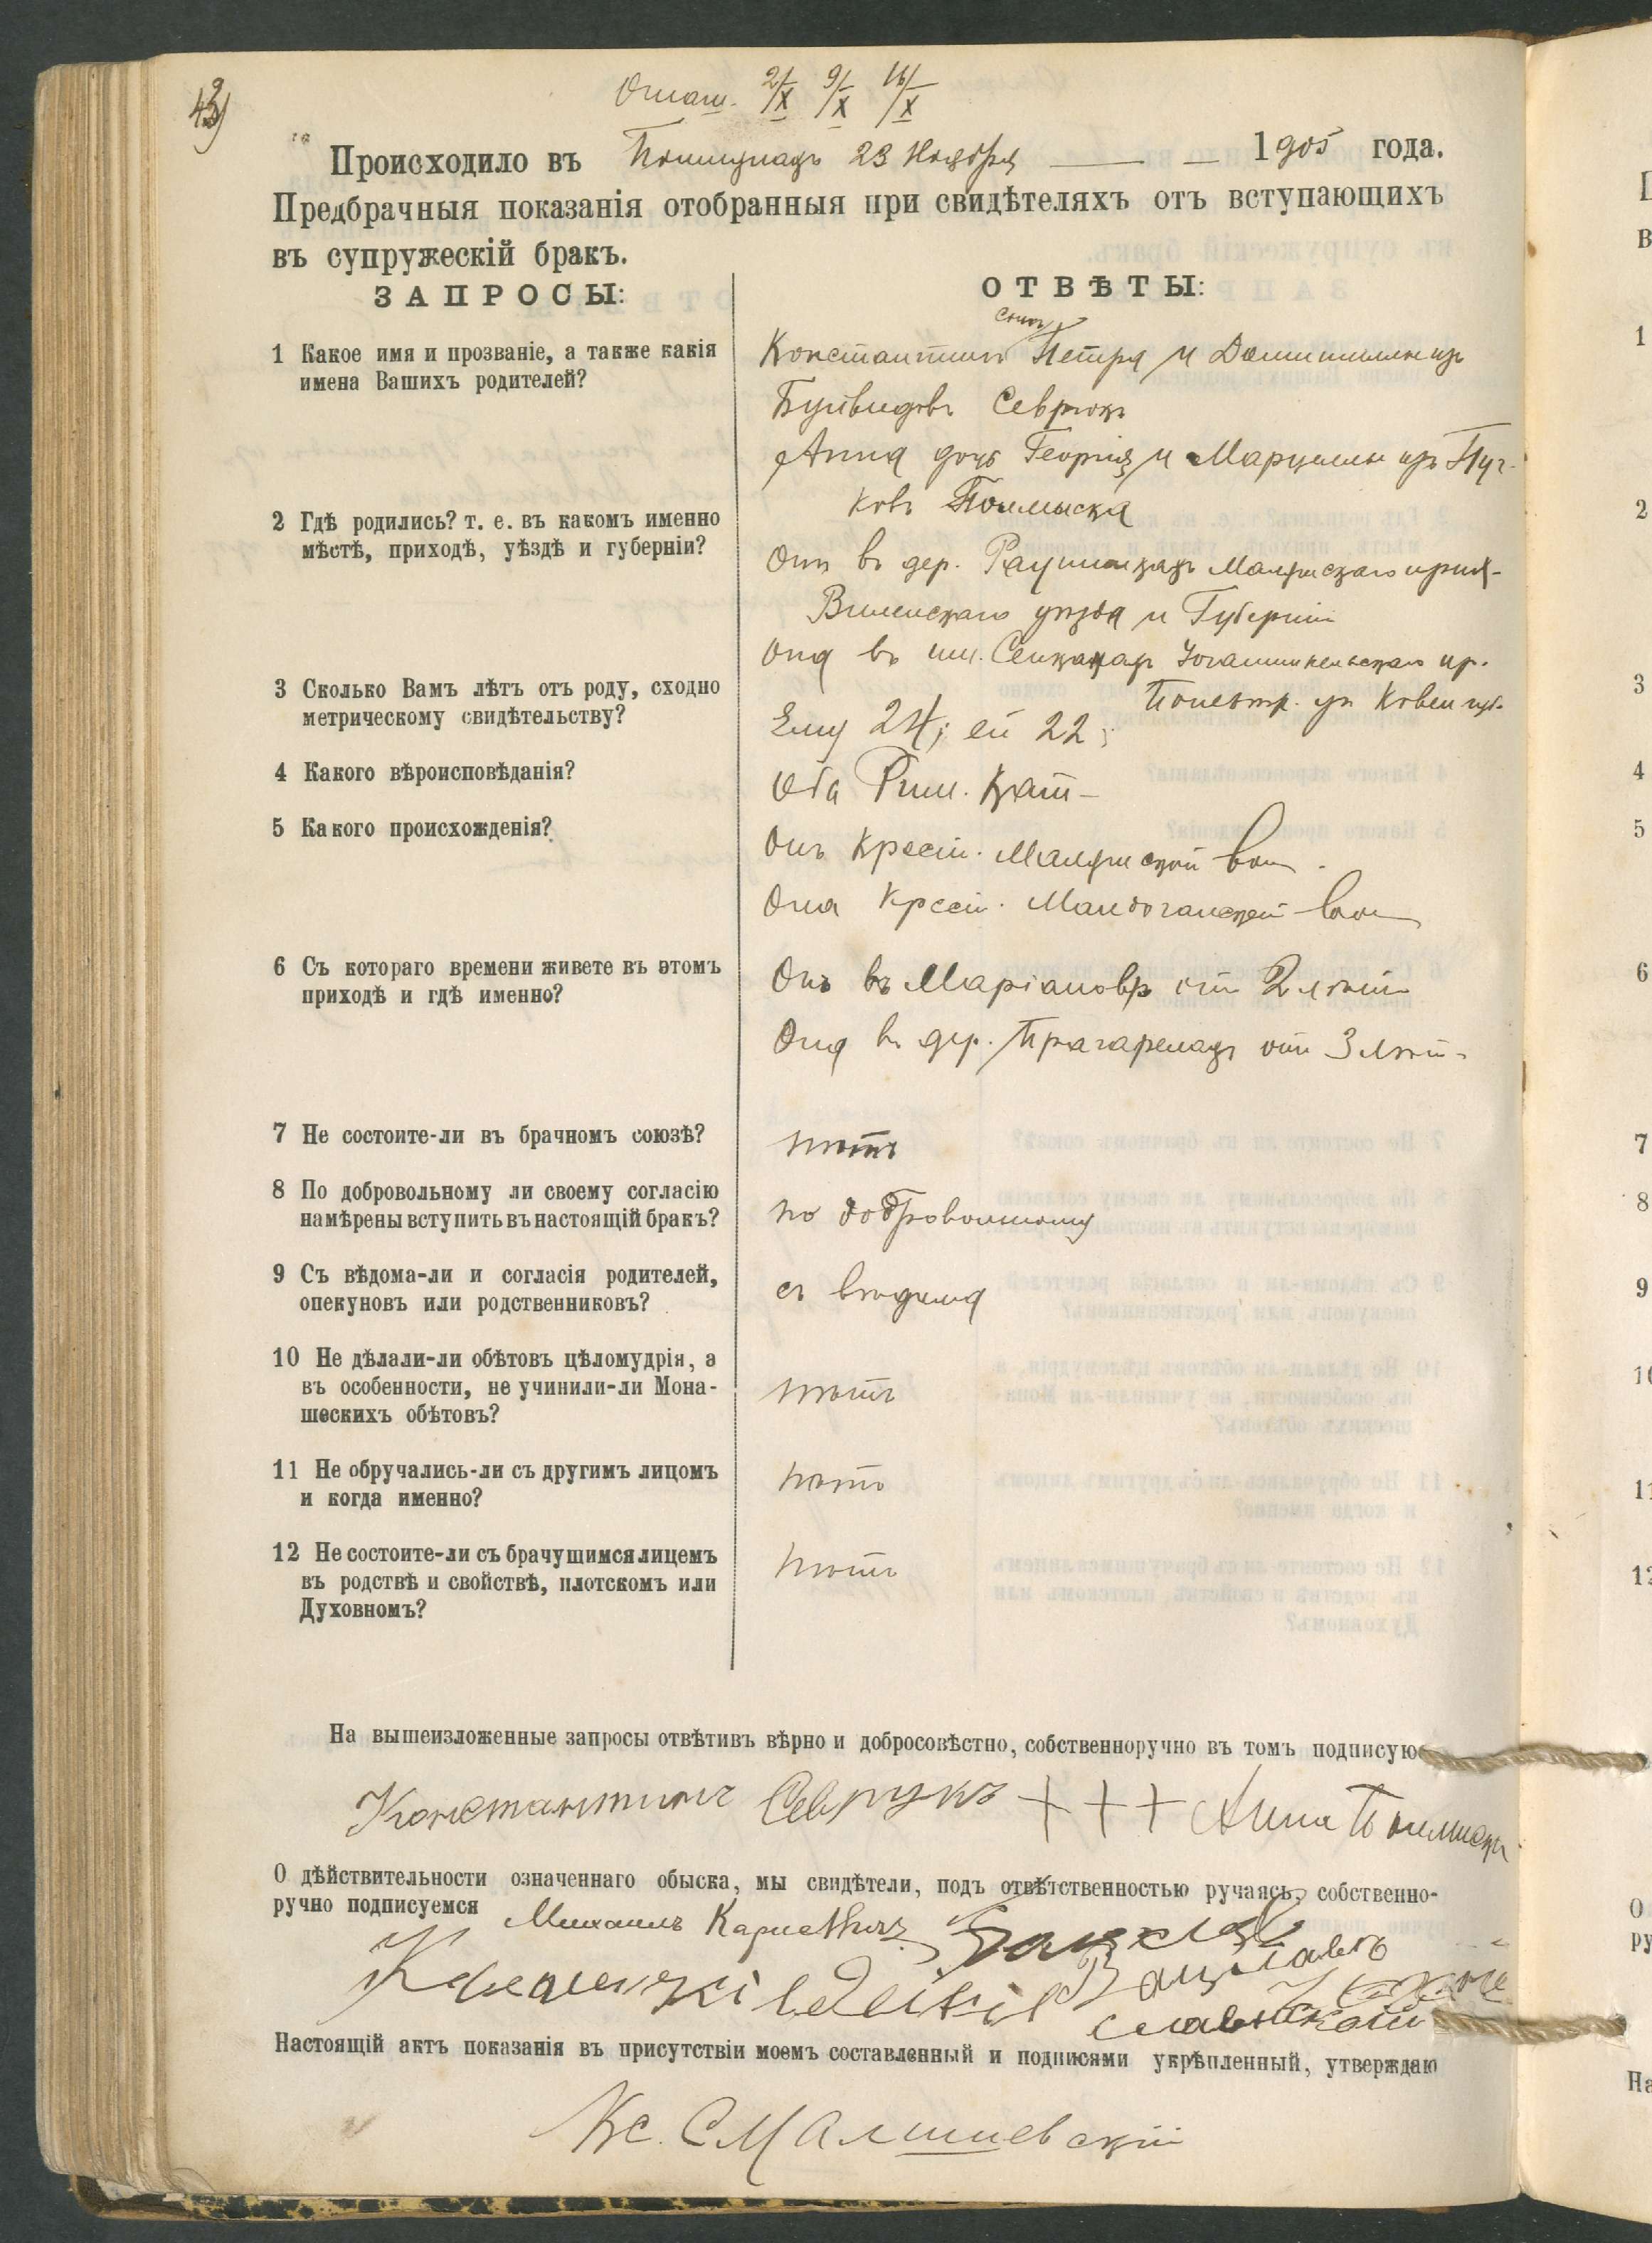 43)
Оглаш. 2/X 9/X 16/X
Происходило въ 23 Ноября 1905 года.
Предбрачныя показанія отобранныя при свидѣтеляхъ отъ вступающихъ
въ супружескій бракъ.
ЗАПРОСЫ:
1 Какое имя и прозваніе, а также какія
имена Вашихъ родителей?
2 Гдѣ родились? т. е. въ какомъ именно
мѣстѣ, приходѣ, уѣздѣ и губерніи?
3 Сколько Вамъ лѣтъ отъ роду, сходно
метрическому свидѣтельству?
4 Какого вѣроисповѣданія?
5 Какого происхожденія?
6 Съ котораго времени живете въ этомъ
приходѣ и гдѣ именно?
7 Не состоите-ли въ брачномъ союзѣ?
8 По добровольному ли своему согласію
намѣрены вступить въ настоящій бракъ?
9 Съ вѣдома-ли и согласія родителей,
опекуновъ или родственниковъ?
10 Не дѣлали-ли обѣтовъ цѣломудрія, а
въ особенности, не учинили-ли Мона-
шескихъ обѣтовъ?
11 Не обручались-ли съ другимъ лицомъ
и когда именно?
12 Не состоите-ли съ брачущимся лицемъ
въ родствѣ и свойствѣ, плотскомъ или
Духовномъ?
ОТВѢТЫ:
сынъ
Константинъ Петра и Домицеллы изъ
Буйвидовъ Севрукъ
Анна дочь Георгія и Марцеллы изъ Пуч-
ковъ
Онъ въ дер. прих.
Виленскаго уѣзда и Губерніи
Она въ им. пр.
Поневѣж. уѣ Ковен губ.
Ему 24; ей 22;
Оба Рим. Кат-
Онъ Крест. вол.
Она Крест. вол
Онъ въ Маріановѣ отъ 2 лѣтъ
Она въ дер. отъ 3 лѣт.
нѣтъ
по добровольному
съ вѣдома
нѣтъ
нѣтъ
нѣтъ
На вышеизложенные запросы отвѣтивъ вѣрно и добросовѣстно, собственноручно въ томъ подписую
Константинъ Севрукъ + + + Анна
О дѣйствительности означеннаго обыска, мы свидѣтели, подъ отвѣтственностью ручаясь, собственно-
ручно подписуемся Михаилъ
Вацлавъ
Настоящій актъ показанія въ присутствіи моемъ составленный и подписями укрѣпленный, утверждаю
Кс.